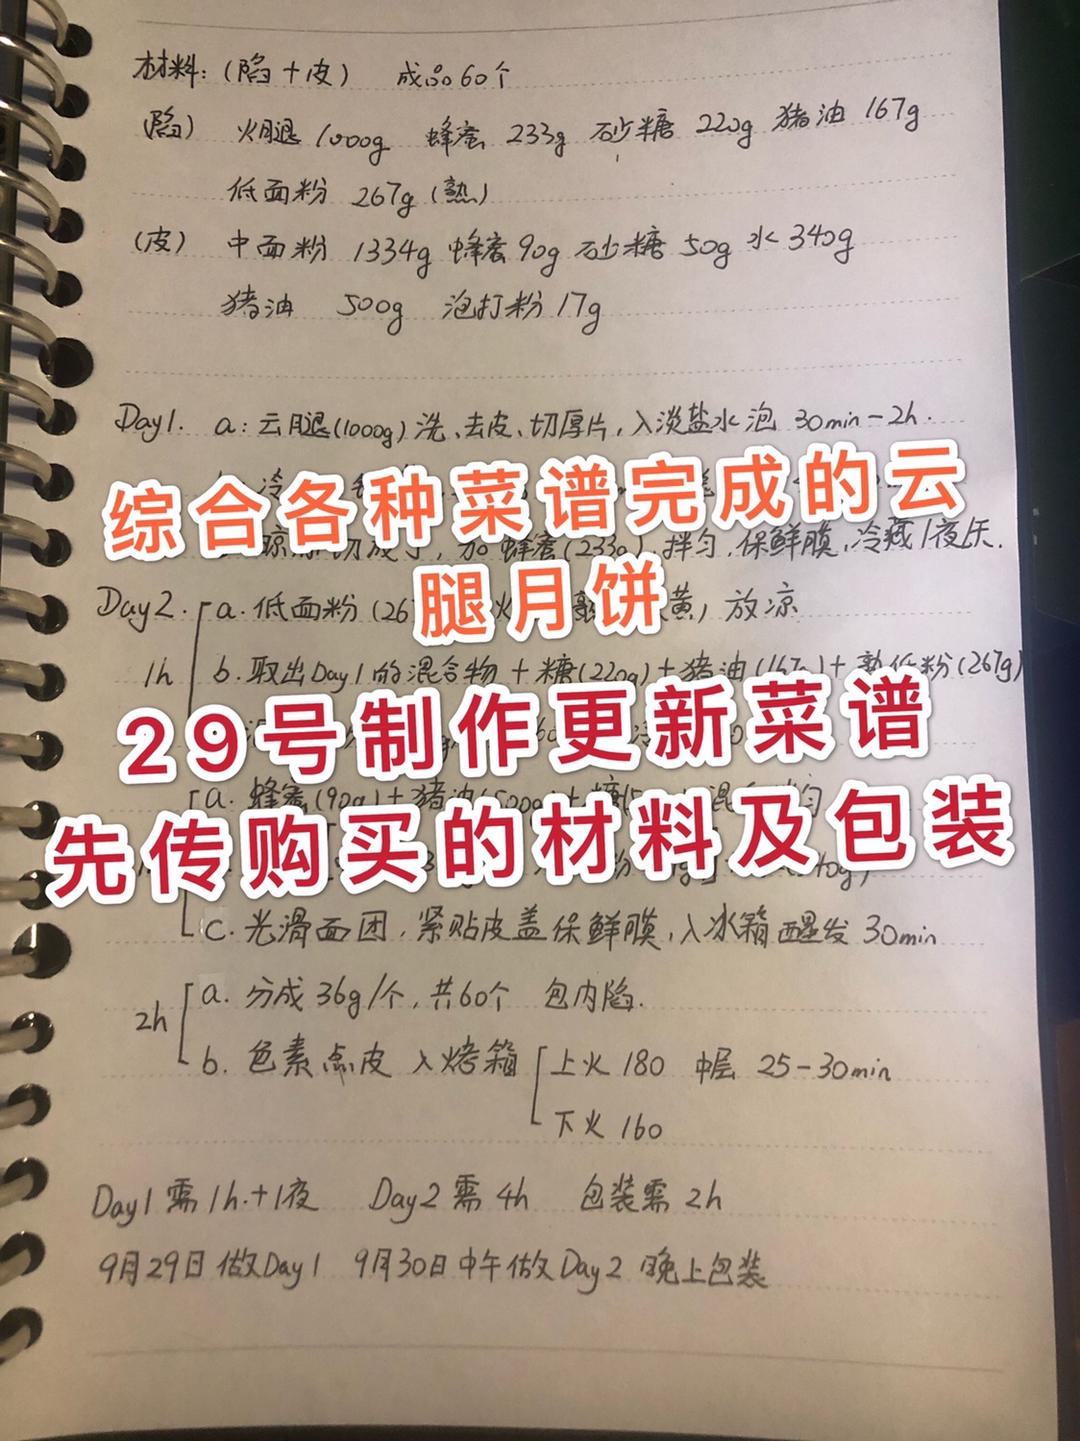 材料：（陷＋皮） 成品60个
（陷） 火腿 1000g 蜂蜜 233g 砂糖 220g 猪油 167g
低面粉 267g（熟）
（皮） 中面粉 1334g 蜂蜜90g 砂糖 50g 水 340g
猪油 500g 泡打粉 17g
Day1. a：云腿(1000g) 洗、去皮、切厚片，入淡盐水泡 30min-2h.
综合各种菜谱完成的云
切成丁，加蜂蜜(233g)拌匀，保鲜膜，冷藏1夜
腿月饼
Day2. a. 低面粉 放凉
1h b. 取出Day1的混合物＋糖(220g)＋猪油(167g)＋熟低粉(267g)
29号制作更新菜谱
a. 蜂蜜(90g)＋猪油(500g)
先传购买的材料及包装
c. 光滑面团，紧贴皮盖保鲜膜，入冰箱醒发 30min
2h a. 分成 36g/个，共60个 包内陷.
b. 色素点皮 入烤箱 上火 180 中层 25-30min
下火 160
Day1需1h.＋1夜 Day2需4h 包装需2h
9月29日做Day1 9月30日中午做Day2 晚上包装